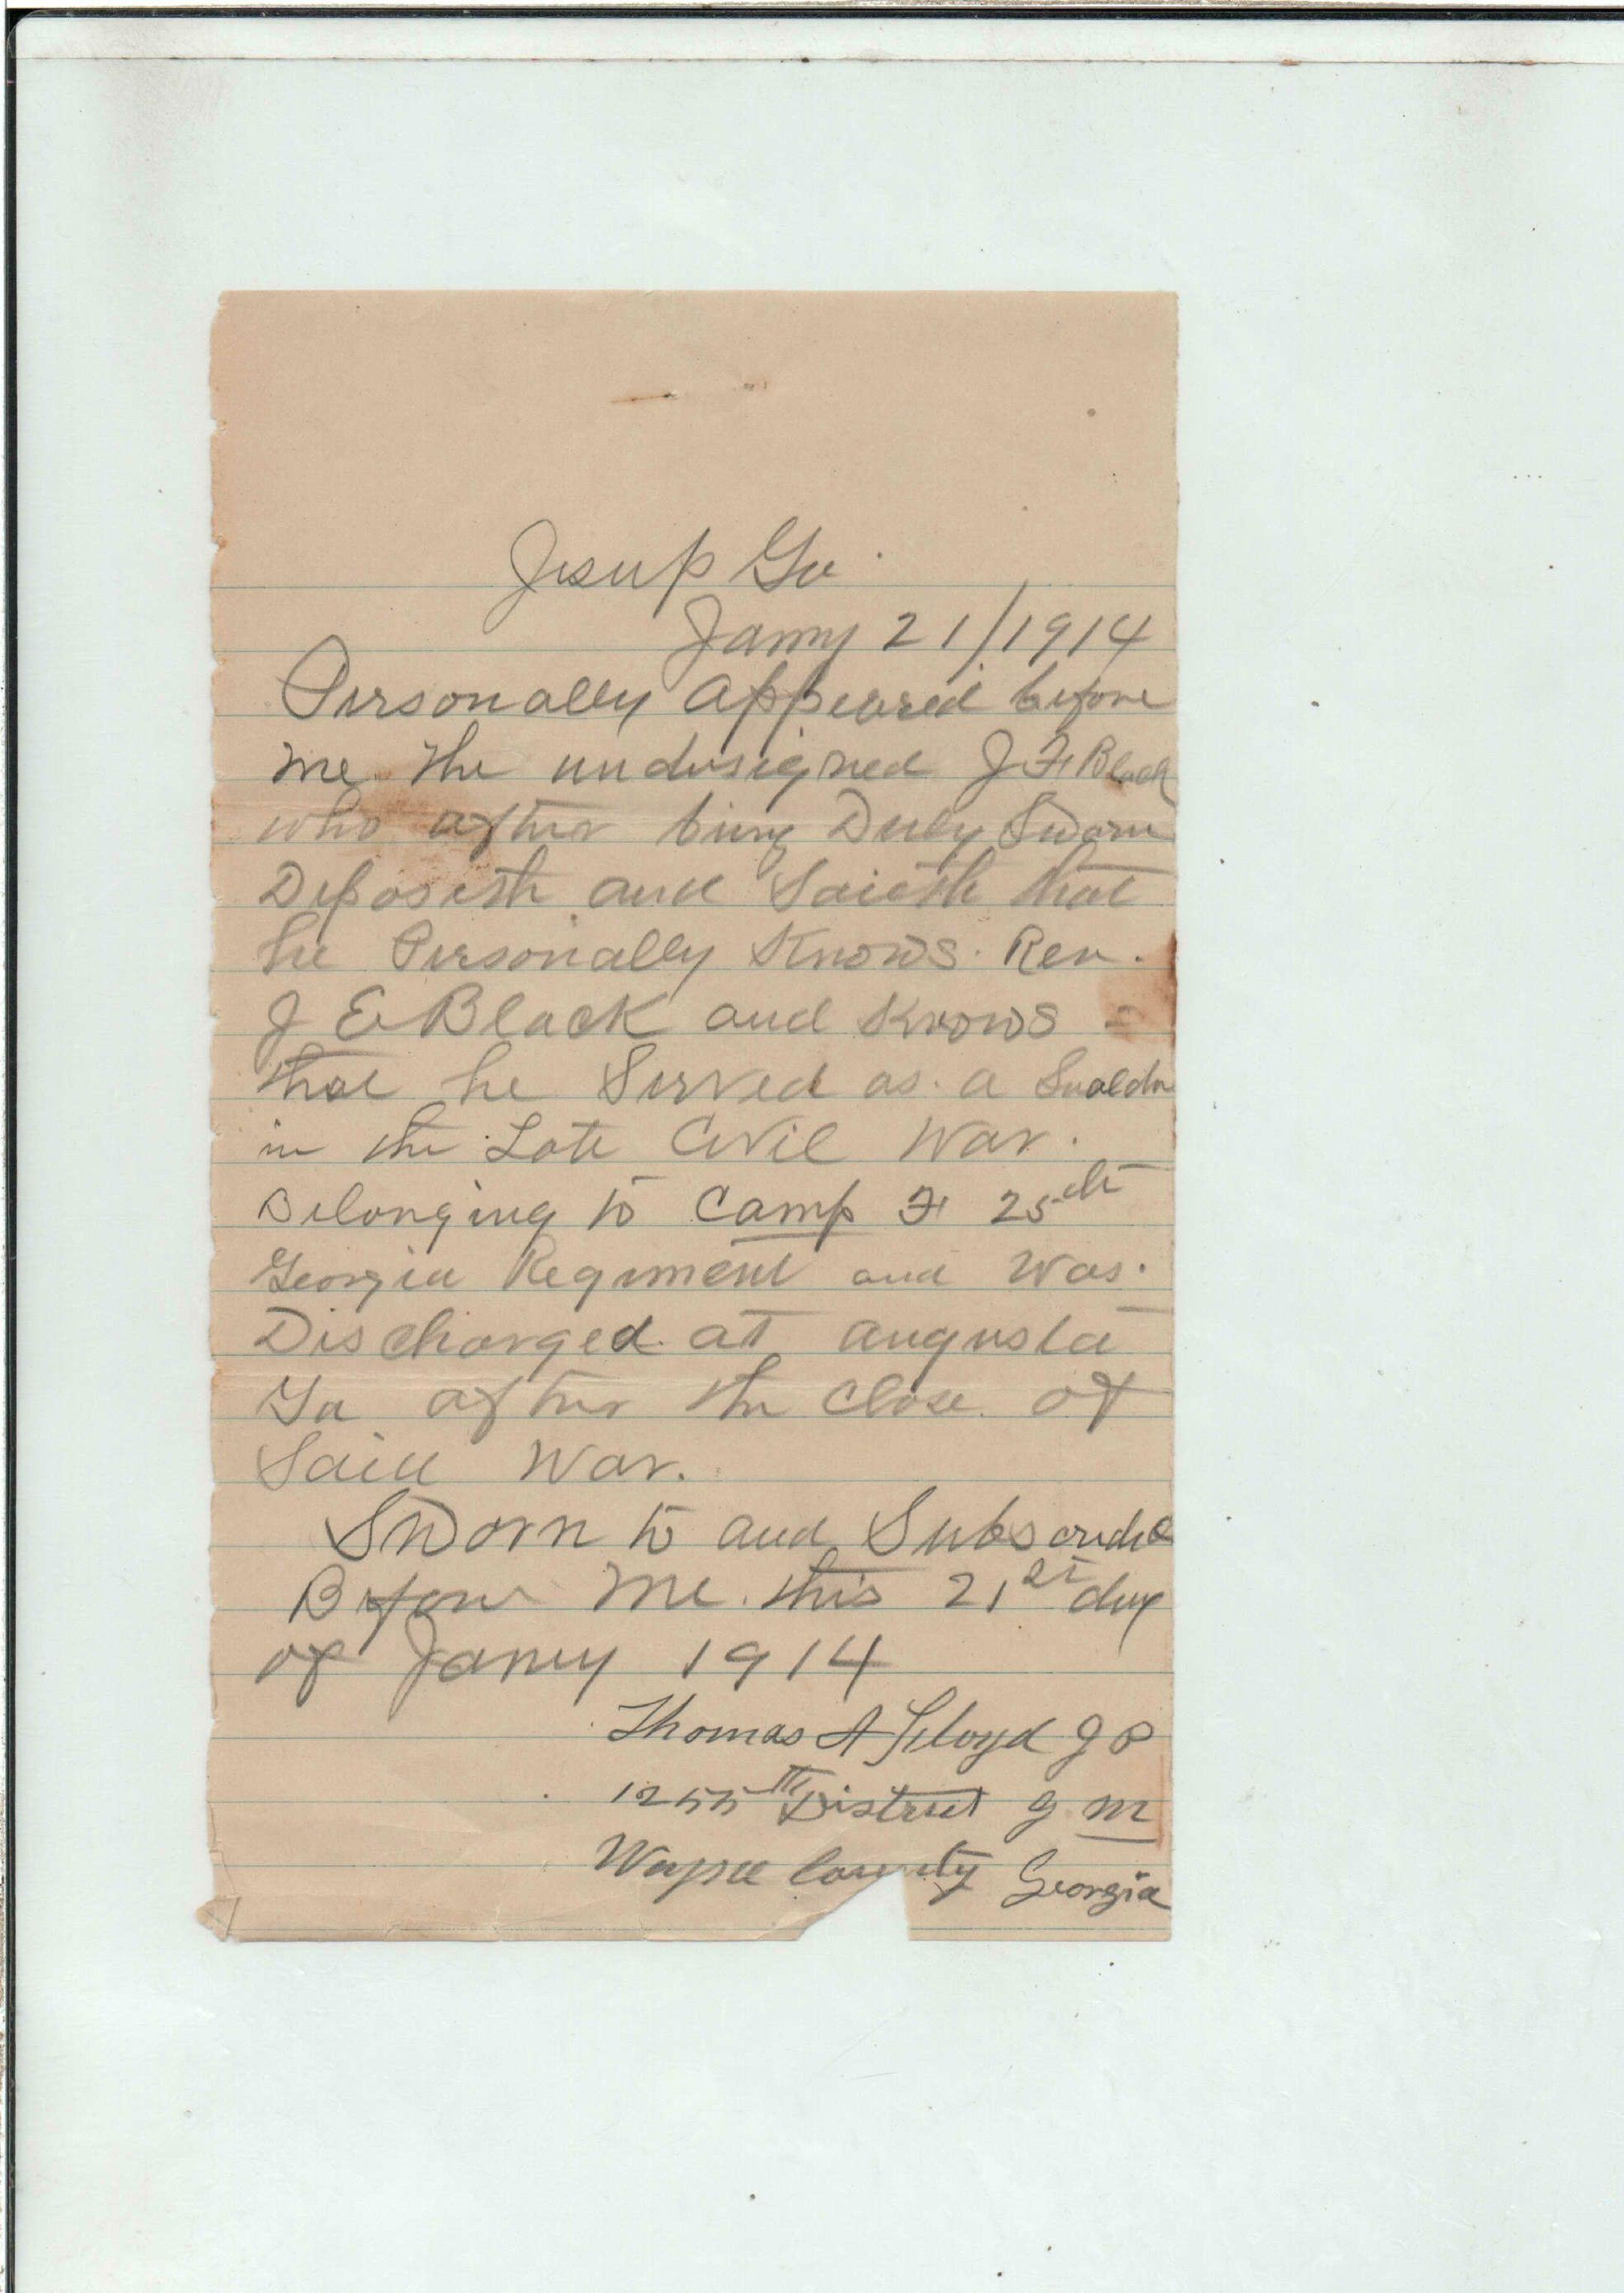 Jesup Ga.
Jany 21/1914
Personally appeared before
me the undersigned J F Black
who after being Duly Sworn
Deposeth and Saieth that
he Personally Knows. Rev.
J E Black and Knows =
that he Served as a
in the Late Civil War.
Belonging to Camp F 25th
Georgia Regiment and was.
Discharged at augusta
Ga after the Close of
Said War.
Sworn to and
Before Me. this 21st day
of Jany 1914
Thomas A Floyd J P
1255th District G M
Wayne County Georgia